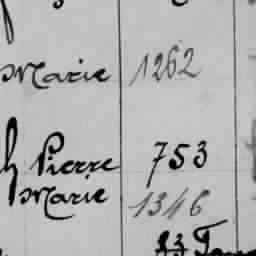 Marie 1262
Pierre 753
Marie 1346